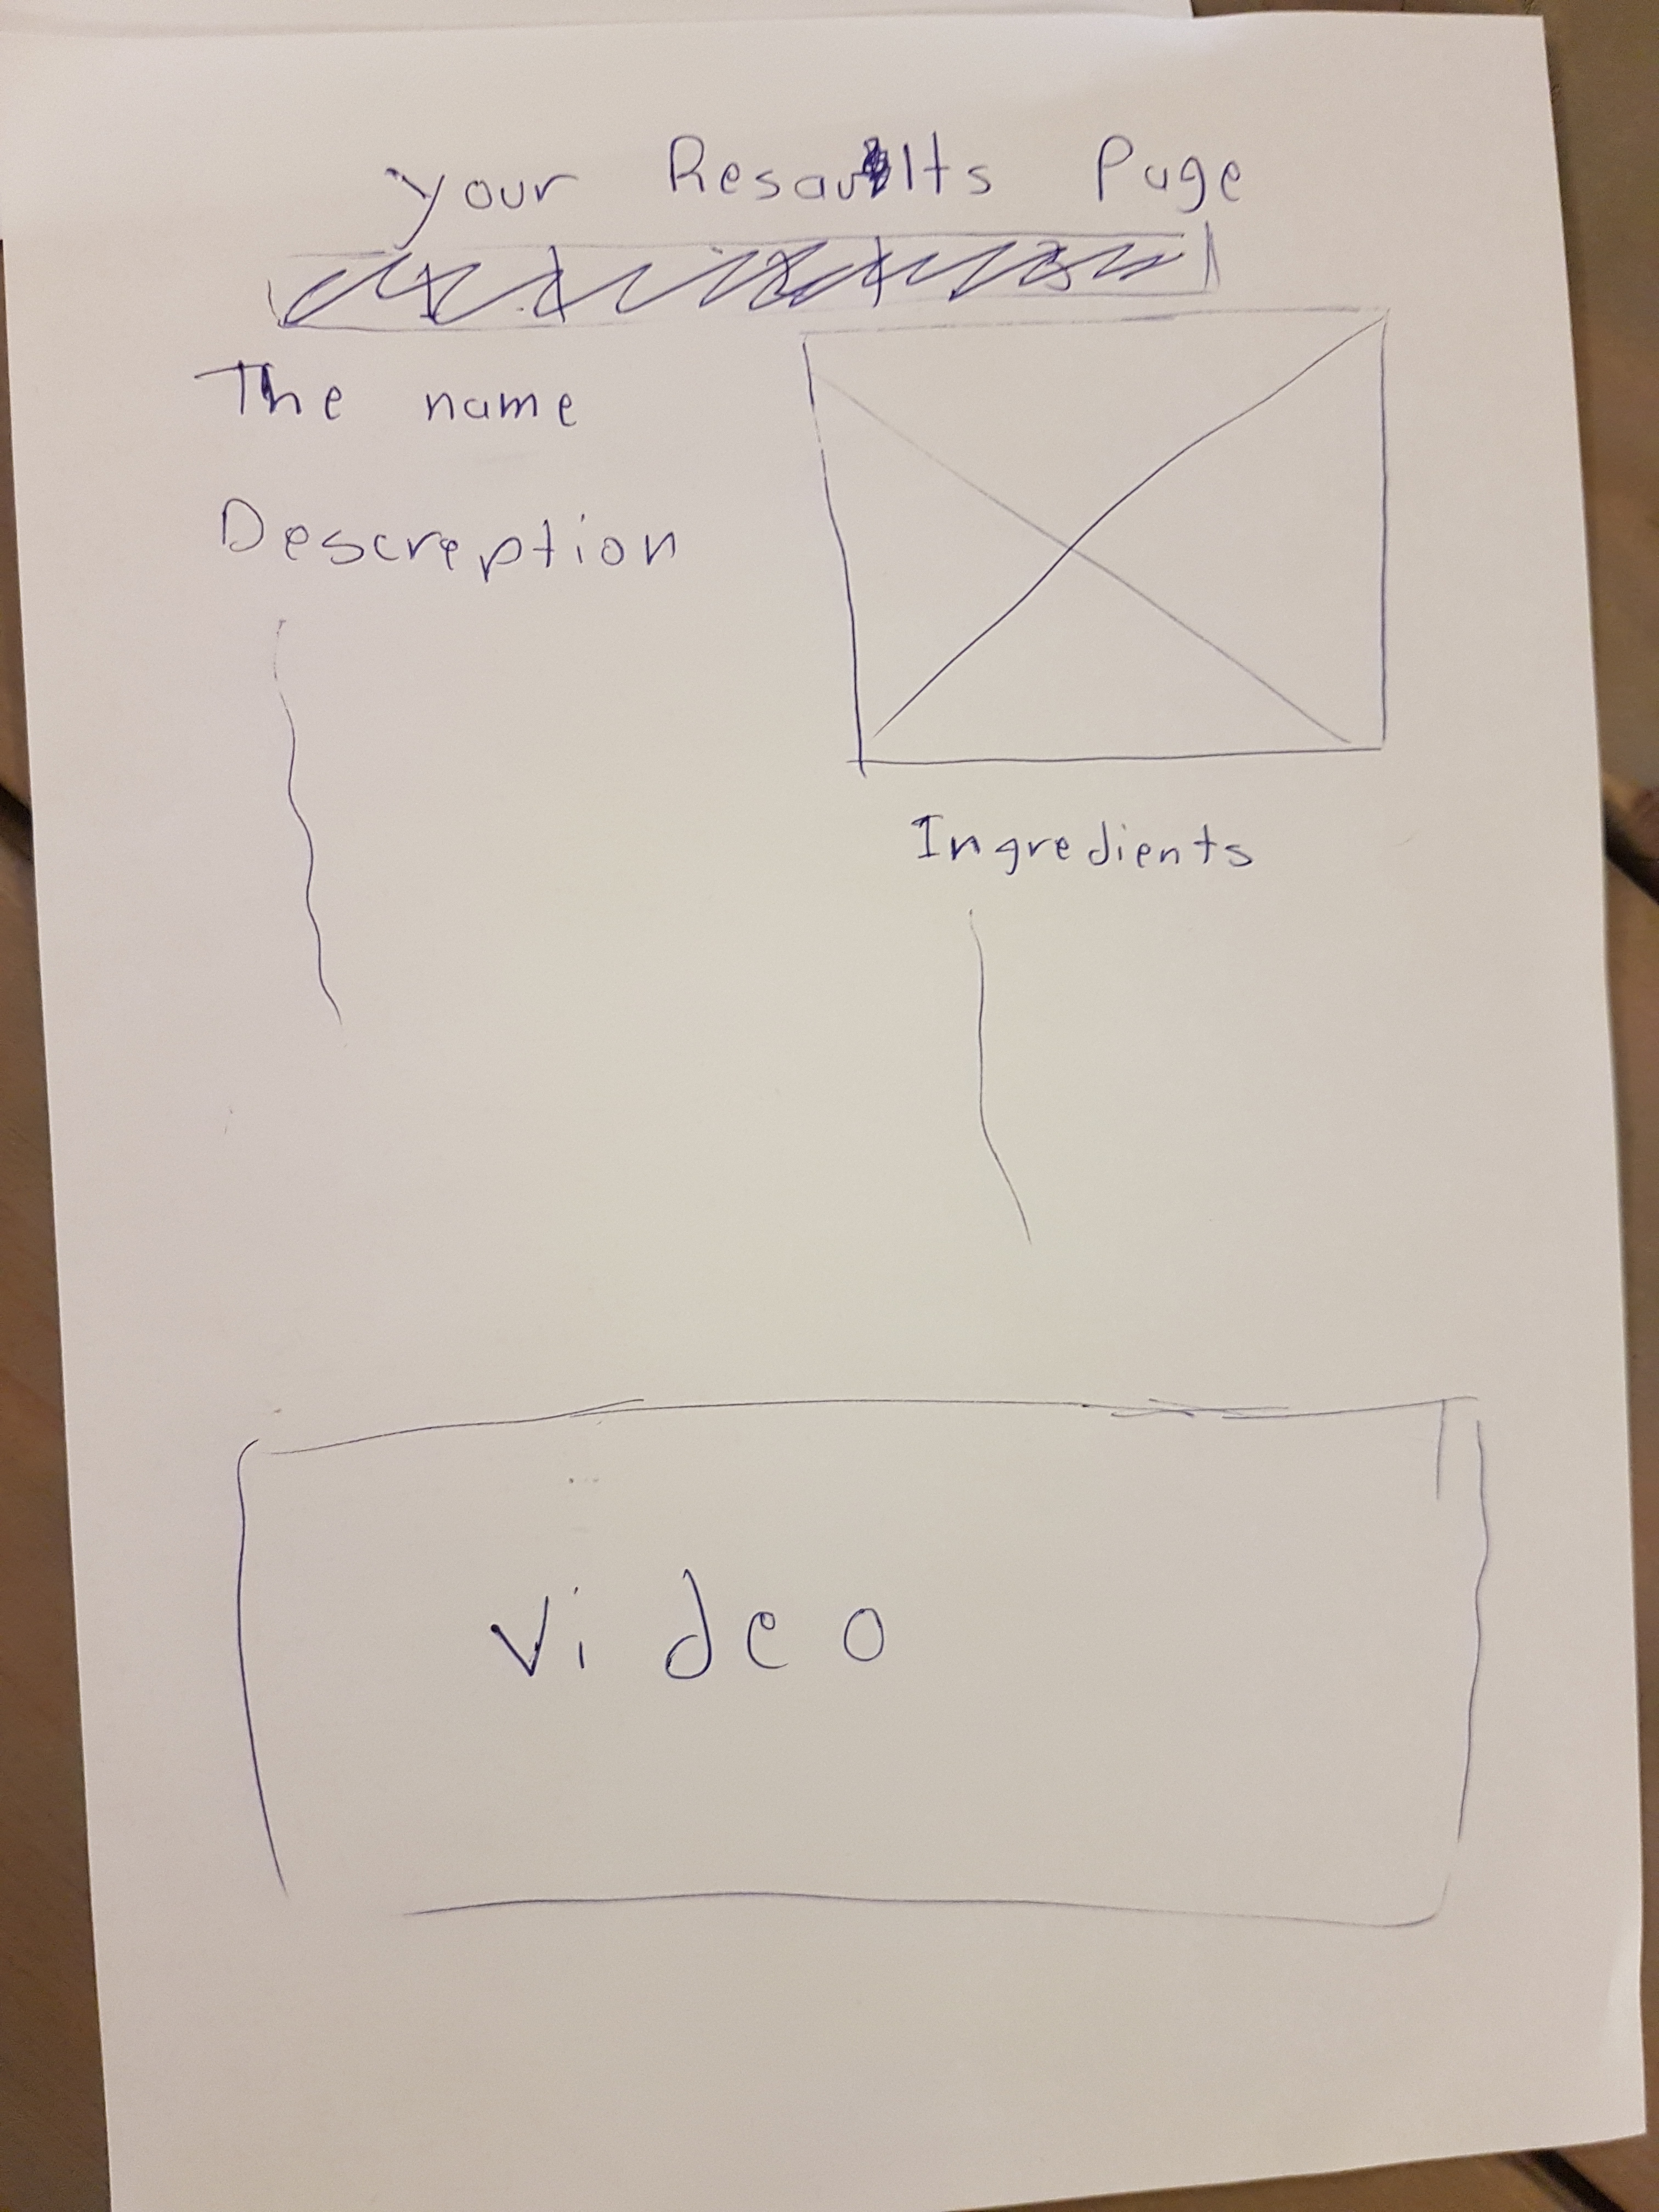 your Resault​s Page
The name
Descreption
Ingredients
Video